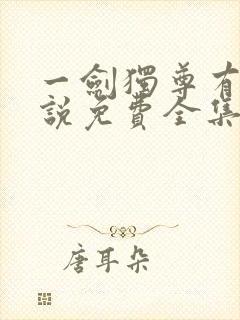 一劍獨尊有
說免費全集
唐耳朵